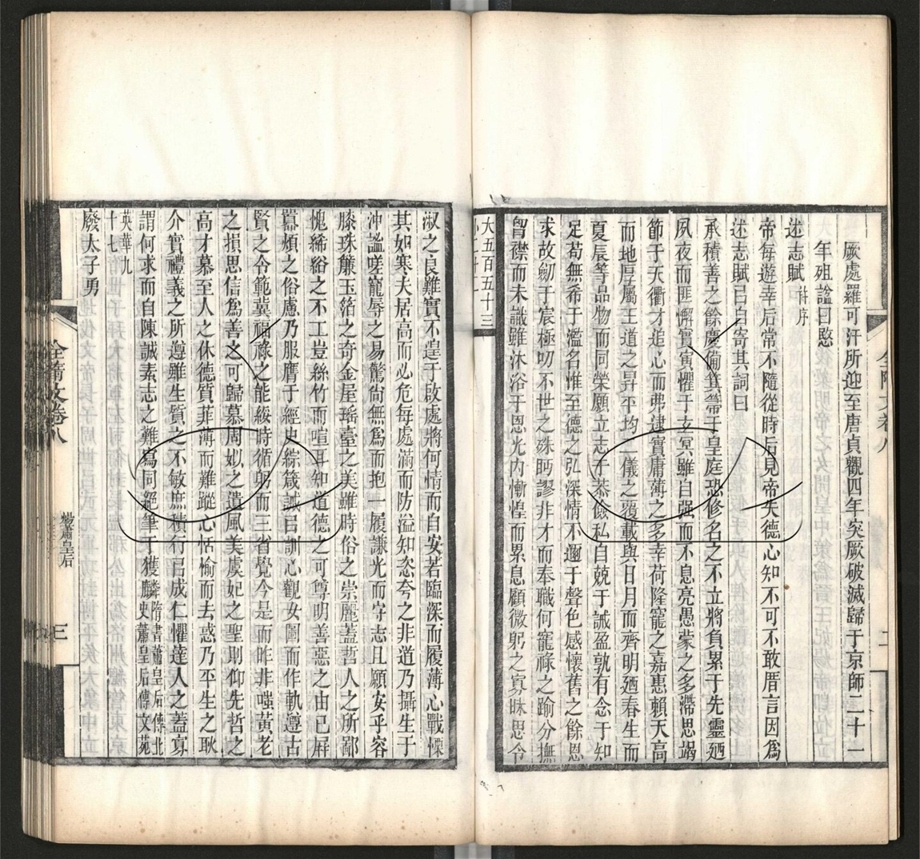 厥處羅可汗所迎至唐貞觀四年突厥破滅歸于京師二十一
年殂諡曰愍
述志賦 并序
帝每遊幸后常不隨從時后見帝失德心知不可不敢厝言因爲
述志賦曰自寄其詞曰
承積善之餘慶備箕箒于皇庭恐修名之不立將負累于先靈廼
夙夜而匪懈實寅懼于玄冥雖自强而不息亮愚蒙之多滯思竭
節于天衢才追心而弗逮實庸薄之多幸荷隆寵之嘉惠賴天高
而地厚屬王道之昇平均二儀之覆載與日月而齊明廼春生而
夏長等品物而同榮願立志于恭儉私自兢于誡盈孰有念于知
足苟無希于濫名惟至德之弘深情不邇于聲色感懷舊之餘恩
求故劒于宸極叨不世之殊眄謬非才而奉職何寵祿之踰分撫
胷襟而未識雖沐浴于恩光內慚惶而累息顧微躬之寡昧思令
大五百五十三
淑之良難實不遑于啟處將何情而自安若臨深而履薄心戰慄
其如寒夫居高而必危每處滿而防溢知恣夸之非道乃攝生于
沖謐嗟寵辱之易驚尙無爲而抱一履謙光而守志且願安乎容
膝珠簾玉箔之奇金屋瑤臺之美雖時俗之崇麗蓋哲人之所鄙
愧絺綌之不工豈絲竹而喧耳知道德之可尊明善惡之由己屛
囂煩之俗慮乃服膺于經史綜箴誡㠯訓心觀女圖而作軌遵古
賢之令範冀福祿之能綏時循躬而三省覺今是而昨非嗤黃老
之損思信爲善之可歸慕周姒之遺風美虞妃之聖則仰先哲之
高才慕至人之休德質菲薄而難蹤心恬愉而去惑乃平生之耿
介實禮義之所遵雖生質之不敏庶積行㠯成仁懼達人之蓋寡
謂何求而自陳誠素志之難寫同絕筆于獲麟 隋書蕭皇后傳北史蕭皇后傳文苑
英華九十七
廢太子勇
全隋文卷八
煬蕭皇后
三